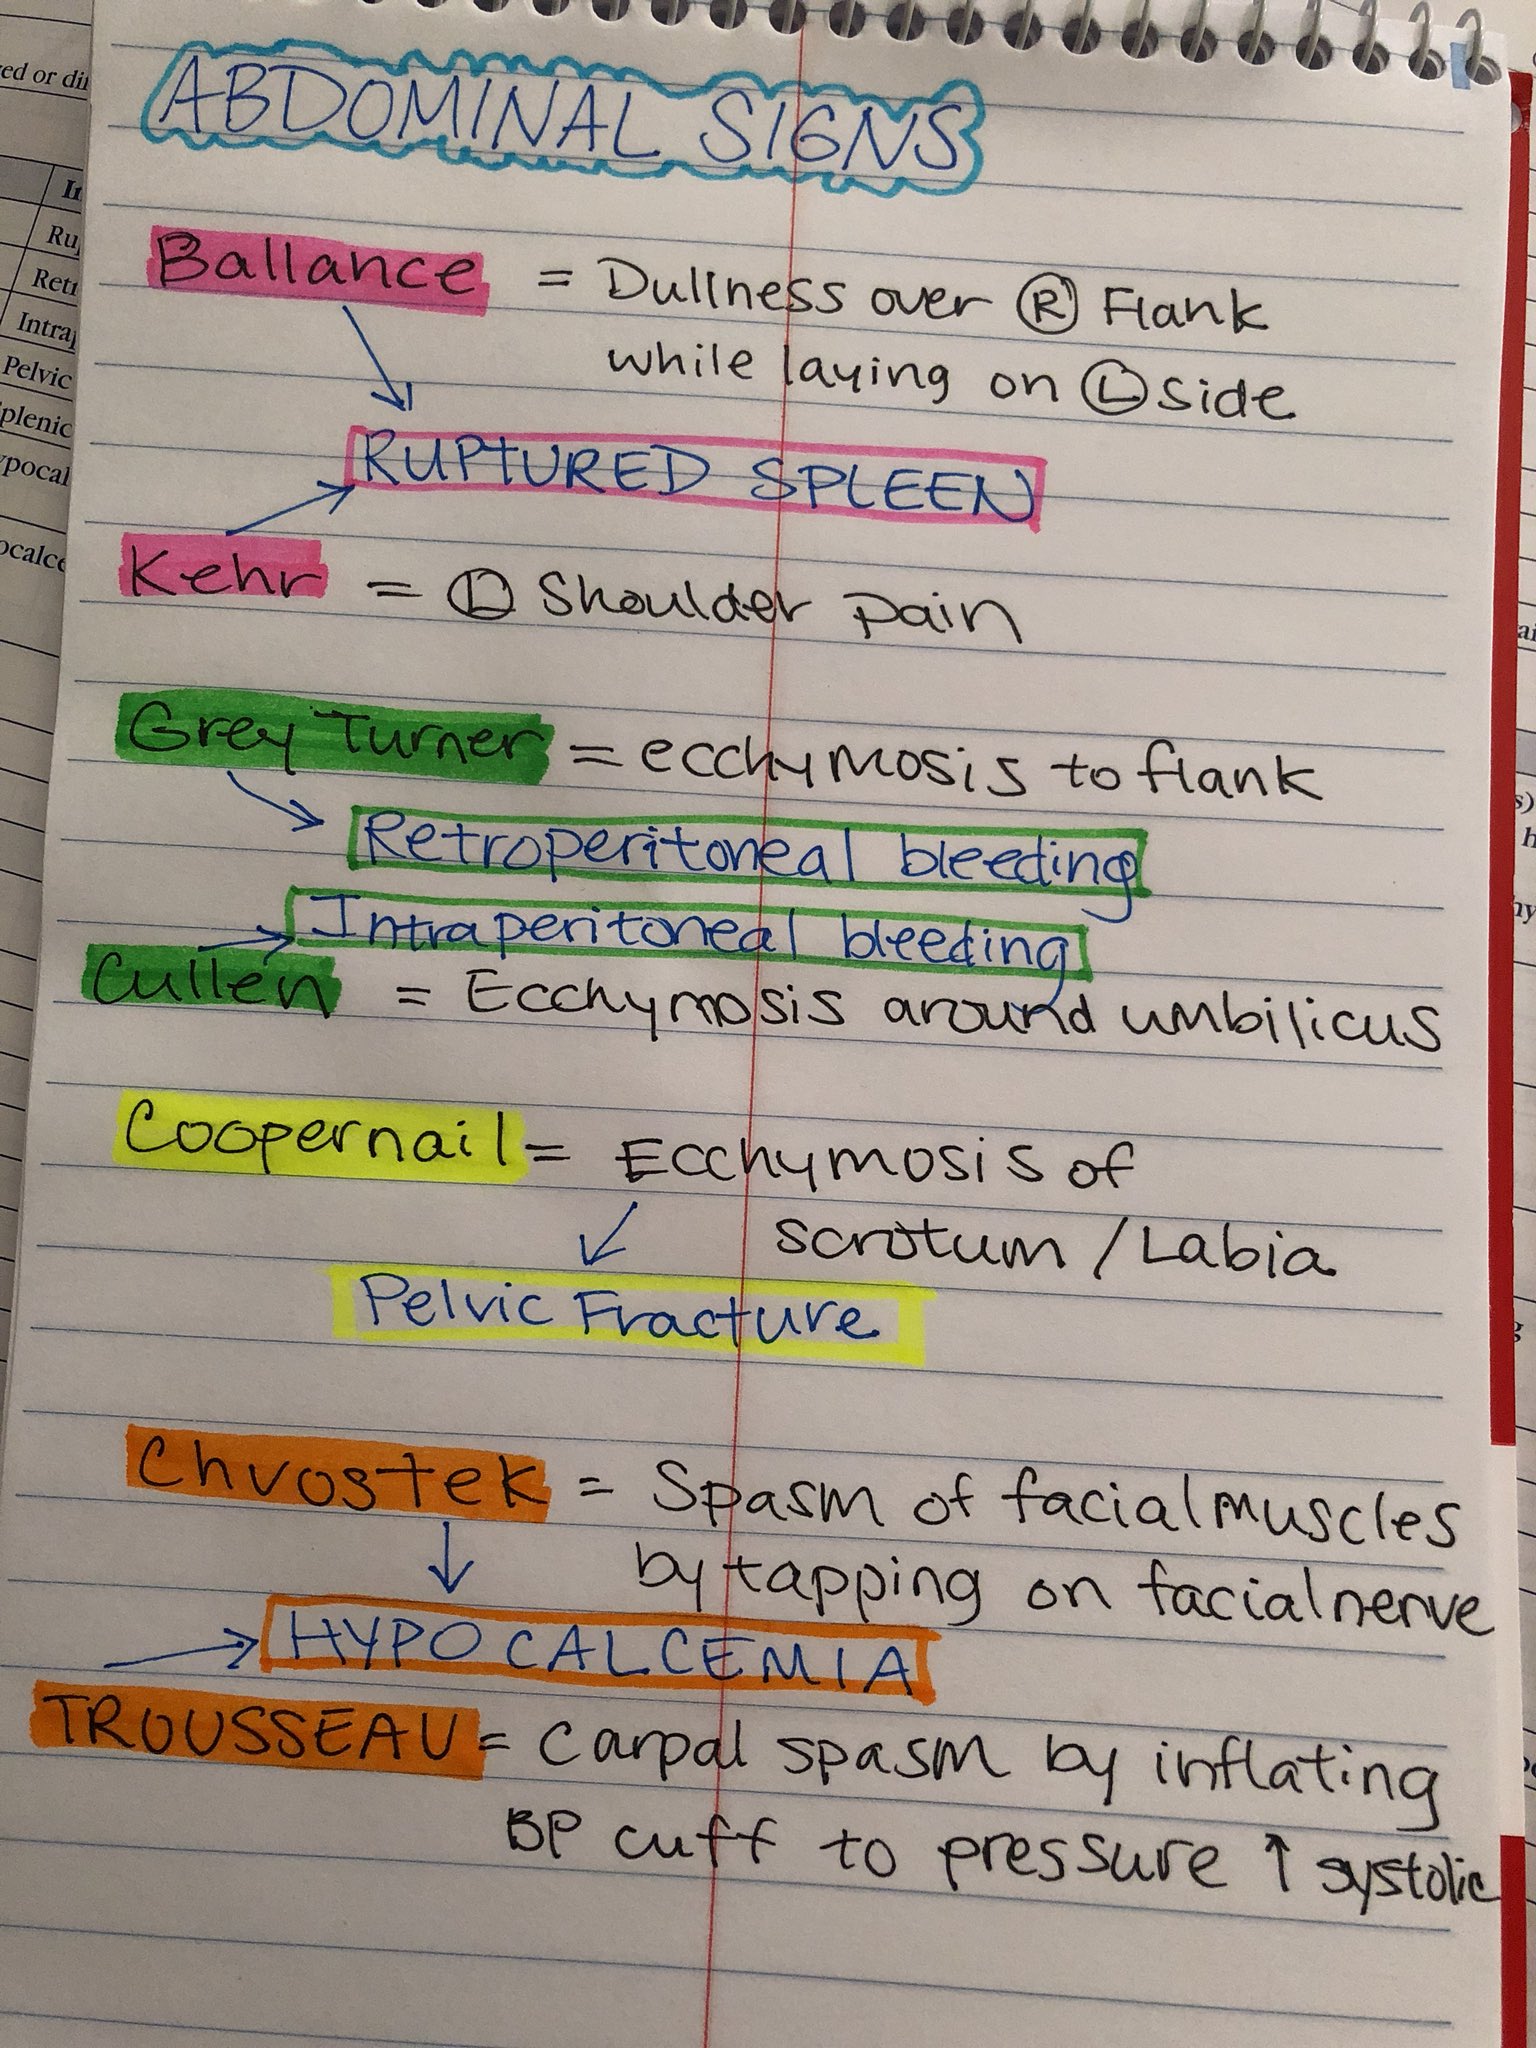 ABDOMINAL SIGNS
Ballance = Dullness over Ⓡ Flank
while laying on Ⓛ side
RUPTURED SPLEEN
Kehr = Ⓛ Shoulder pain
Grey Turner = ecchymosis to flank
Retroperitoneal bleeding
Intraperitoneal bleeding
Cullen = Ecchymosis around umbilicus
Coopernail = Ecchymosis of
scrotum / Labia
Pelvic Fracture
Chvostek = Spasm of facial muscles
by tapping on facial nerve
HYPOCALCEMIA
TROUSSEAU = Carpal spasm by inflating
BP cuff to pressure ↑ systolic
ed or di
Ru
Retr
Intrap
Pelvic
plenic
ypocal
ocalce